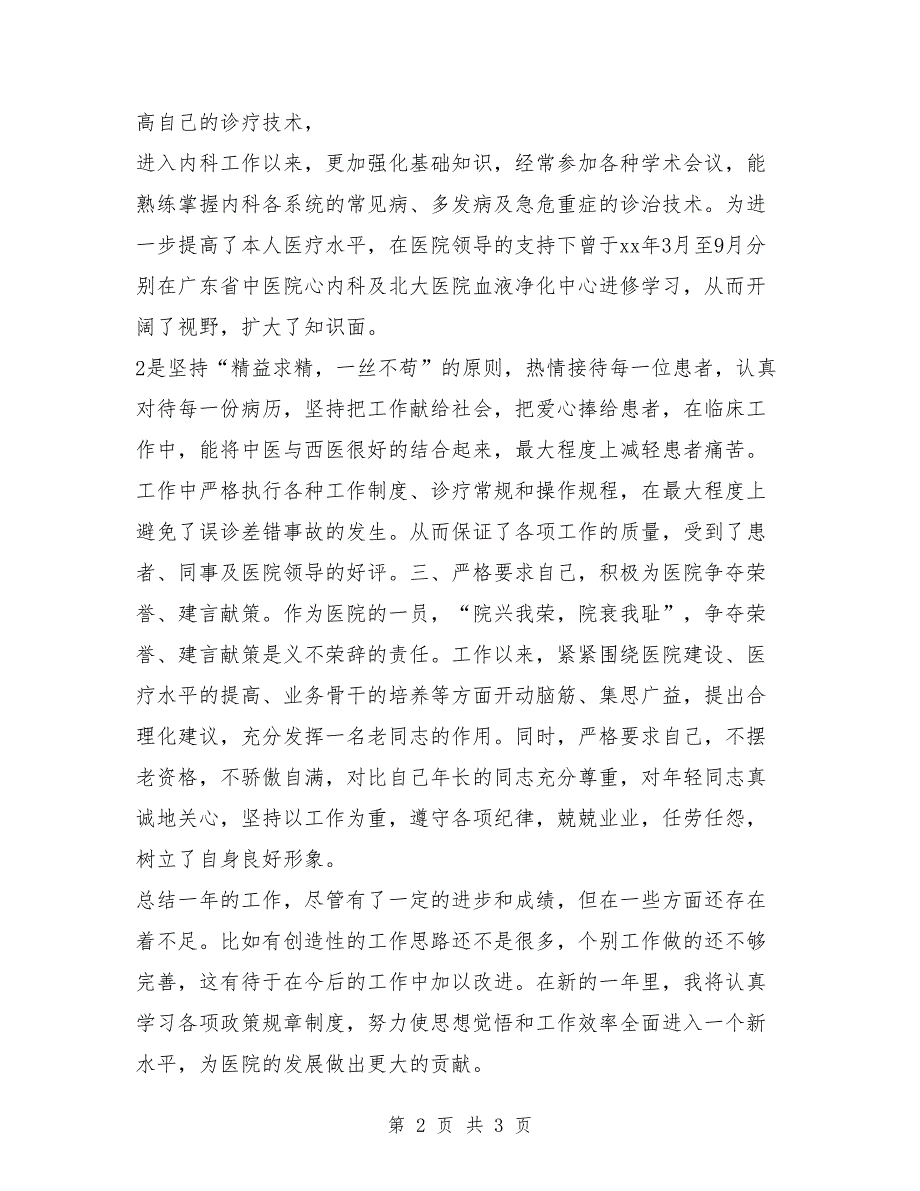 高自己的诊疗技术，
进入内科工作以来，更加强化基础知识，经常参加各种学术会议，能
熟练掌握内科各系统的常见病、多发病及急危重症的诊治技术。为进
一步提高了本人医疗水平，在医院领导的支持下曾于xx年3月至9月分
别在广东省中医院心内科及北大医院血液净化中心进修学习，从而开
阔了视野，扩大了知识面。
2是坚持“精益求精，一丝不苟”的原则，热情接待每一位患者，认真
对待每一份病历，坚持把工作献给社会，把爱心捧给患者，在临床工
作中，能将中医与西医很好的结合起来，最大程度上减轻患者痛苦。
工作中严格执行各种工作制度、诊疗常规和操作规程，在最大程度上
避免了误诊差错事故的发生。从而保证了各项工作的质量，受到了患
者、同事及医院领导的好评。三、严格要求自己，积极为医院争夺荣
誉、建言献策。作为医院的一员，“院兴我荣，院衰我耻”，争夺荣
誉、建言献策是义不荣辞的责任。工作以来，紧紧围绕医院建设、医
疗水平的提高、业务骨干的培养等方面开动脑筋、集思广益，提出合
理化建议，充分发挥一名老同志的作用。同时，严格要求自己，不摆
老资格，不骄傲自满，对比自己年长的同志充分尊重，对年轻同志真
诚地关心，坚持以工作为重，遵守各项纪律，兢兢业业，任劳任怨，
树立了自身良好形象。
总结一年的工作，尽管有了一定的进步和成绩，但在一些方面还存在
着不足。比如有创造性的工作思路还不是很多，个别工作做的还不够
完善，这有待于在今后的工作中加以改进。在新的一年里，我将认真
学习各项政策规章制度，努力使思想觉悟和工作效率全面进入一个新
水平，为医院的发展做出更大的贡献。
第 2 页 共 3 页